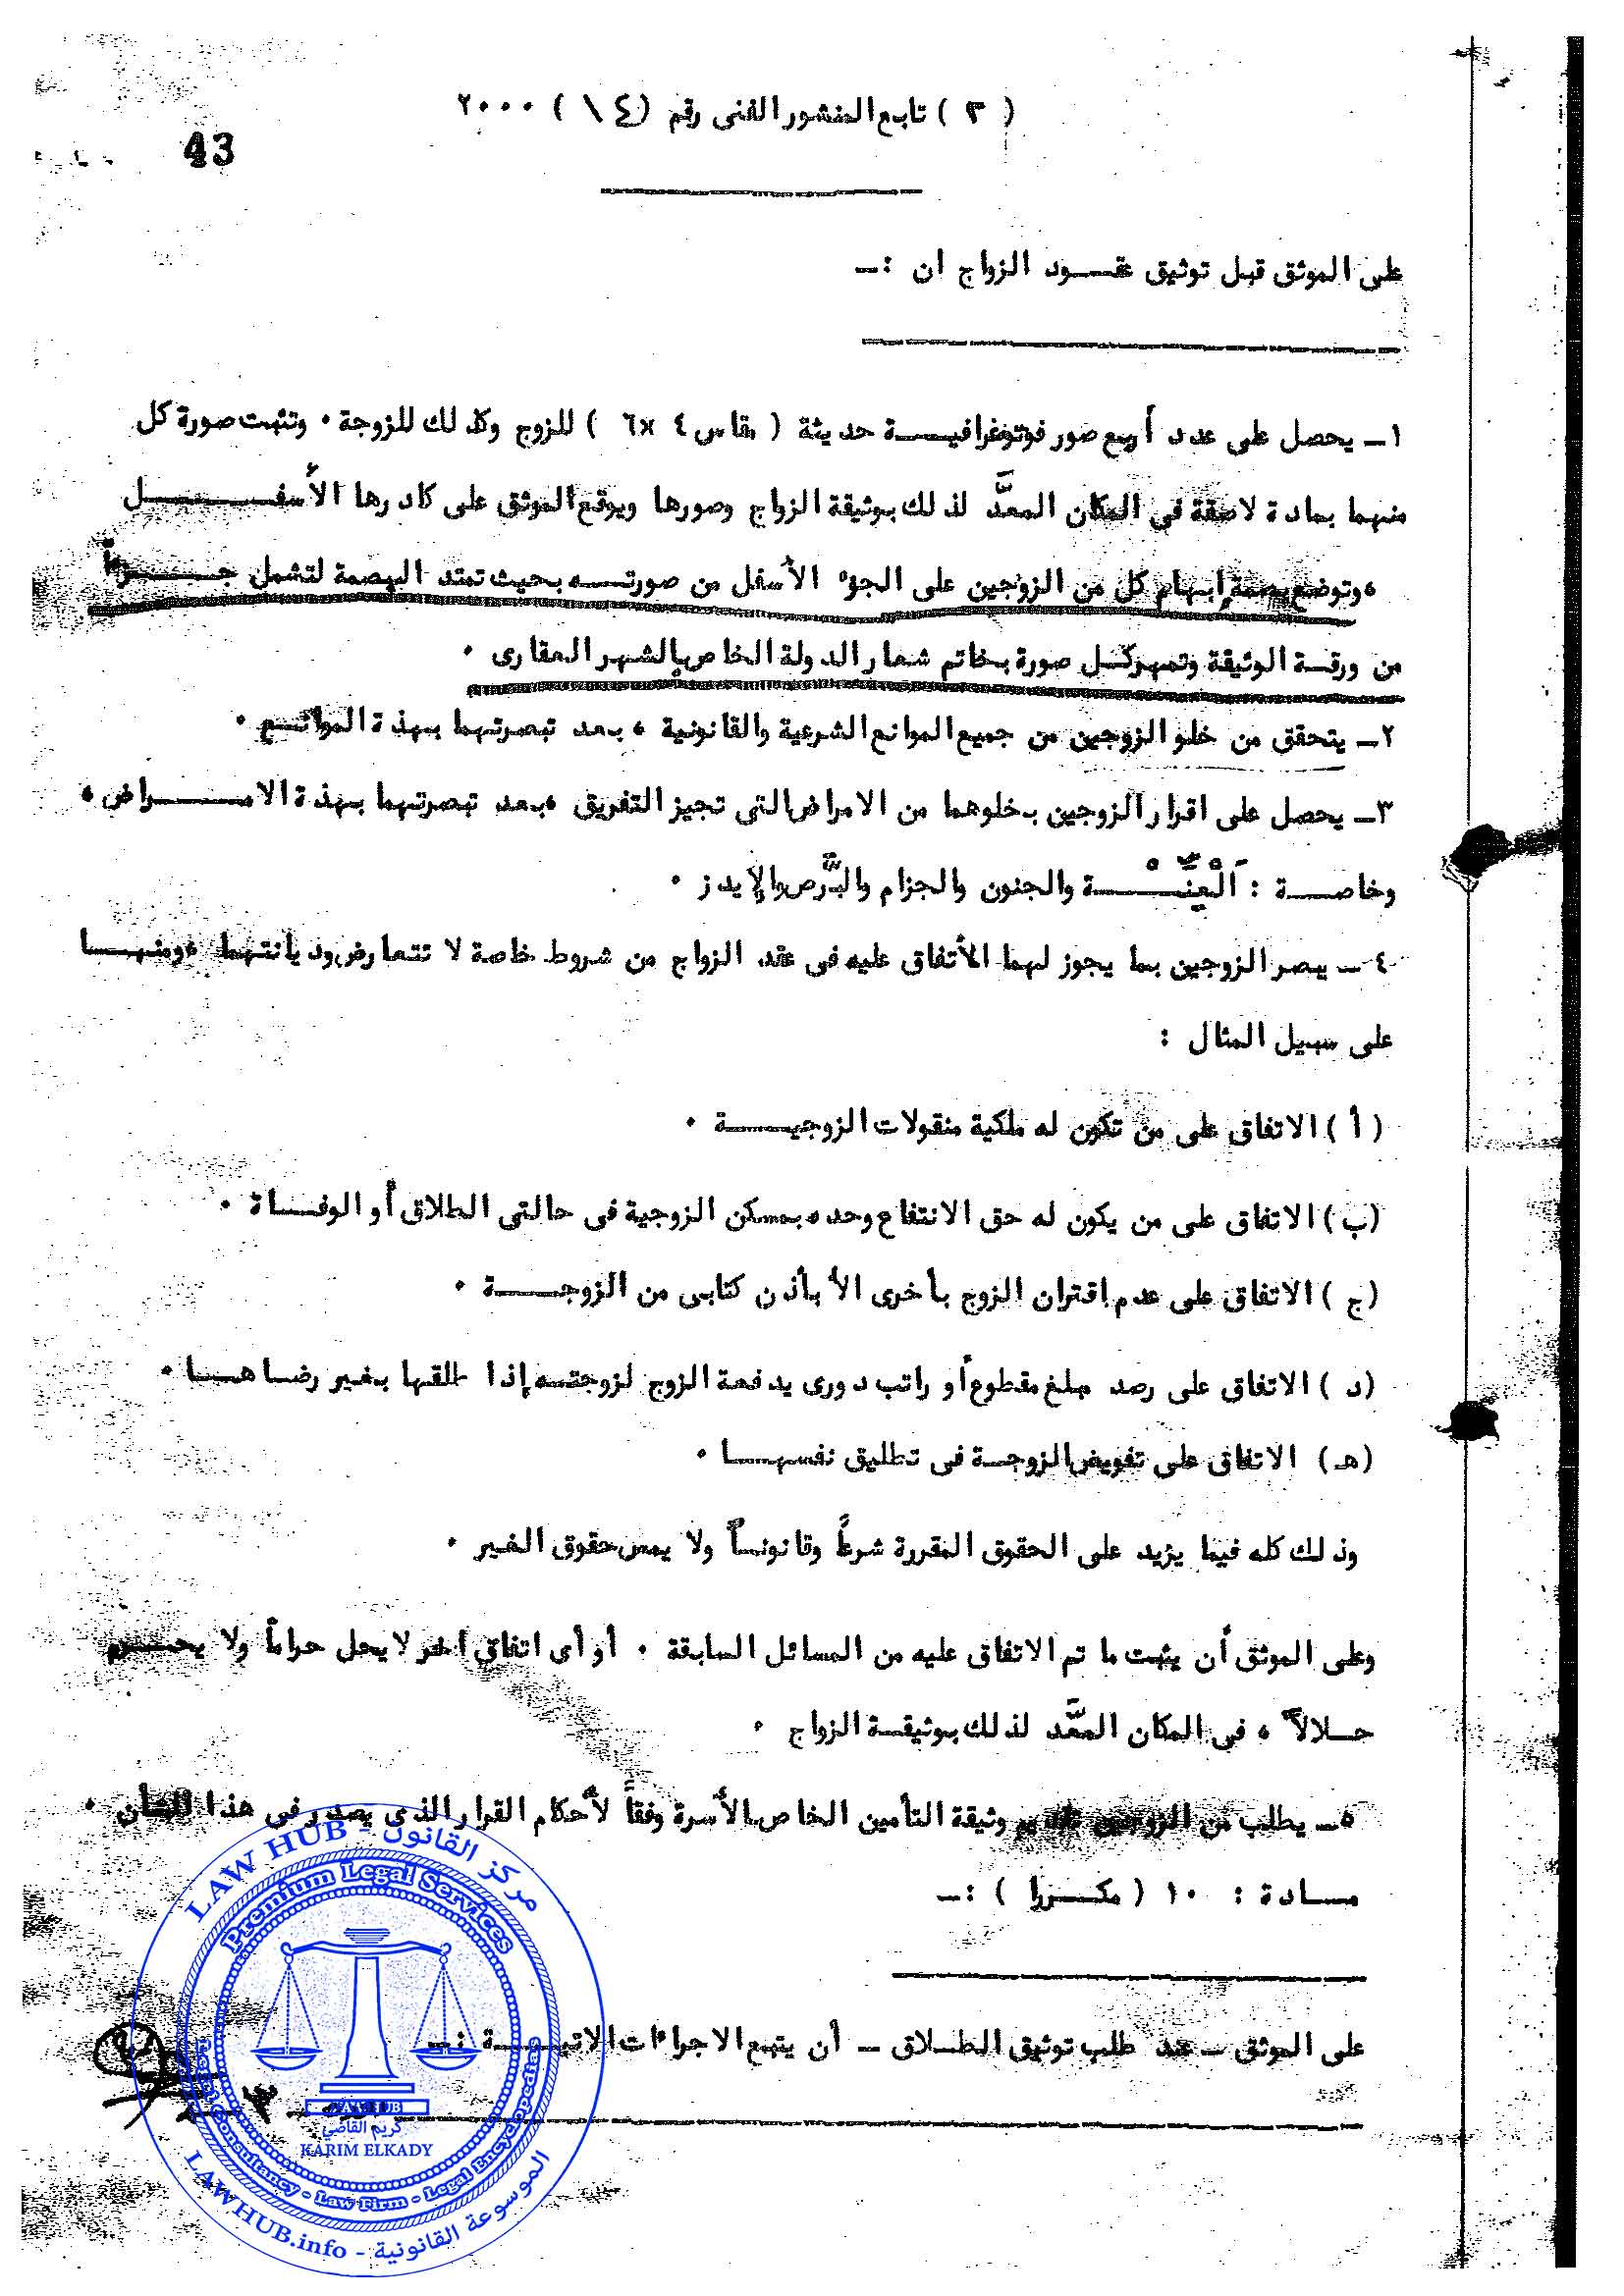 ( ٣ ) تابع المنشور الفنى رقم ( ١٤ ) ٢٠٠٠
43
على الموثق قبل توثيق عقـــود الزواج ان :ــ
١ــ يحصل على عدد أربع صور فوتوغرافيـــة حديثة ( مقاس ٤ ×٦ ) للزوج وكذلك للزوجة ٠ وتثبت صورة كل
منهما بمادة لاصقة فى المكان المعدَّ لذلك بوثيقة الزواج وصورها ويوقع الموثق على كادرها الأسفـــــــل
، وتوضع بصمة إبهام كل من الزوجين على الجزء الأسفل من صورتـــه بحيث تمتد البصمة لتشمل جـــــزءاً
من ورقــة الوثيقة وتمهر كــل صورة بخاتم شعار الدولة الخاص بالشهر العقارى ٠
٢ــ يتحقق من خلو الزوجين من جميع الموانع الشرعية والقانونية ، بعد تبصرتهما بهذة الموانـــع ٠
٣ــ يحصل على اقرار الزوجين بخلوهما من الامراض التى تجيز التفريق ، بعد تبصرتهما بهذة الامـــــراض ،
وخاصـــة : اَلْعِنِّـــــة والجنون والجزام والبَرص والإيدز ٠
٤ ــ يبصر الزوجين بما يجوز لهما الأتفاق عليه فى عقد الزواج من شروط خاصة لا تتعارض وديانتهما ، ومنهـــا
على سبيل المثال :
( أ ) الاتفاق على من تكون له ملكية منقولات الزوجيــــة ٠
(ب) الاتفاق على من يكون له حق الانتفاع وحده بمسكن الزوجية فى حالتى الطلاق أو الوفـــاة ٠
(ج ) الاتفاق على عدم اقتران الزوج بأخرى الأ بأذن كتابى من الزوجــــة ٠
(د ) الاتفاق على رصد مبلغ مقطوع أو راتب دورى يدفعة الزوج لزوجتــه إذا طلقها بغير رضــاهــا ٠
(هـ) الاتفاق على تفويض الزوجــة فى تطليق نفسهــــا ٠
وذلك كله فيما يزيد على الحقوق المقررة شرعاً وقانونــاً ولا يمس حقوق الغير ٠
وعلى الموثق أن يثبت ما تم الاتفاق عليه من المسائل السابقة ٠ أو أى اتفاق اخر لا يحل حراماً ولا يحـــرم
حــلالاً ، فى المكان المعَّد لذلك بوثيقــة الزواج ٠
٥ــ يطلب من الزوجين تقديم وثيقة التأمين الخاص بالأسرة وفقاً لأحكام القرار الذى يصدر فى هذا الشأن ٠
مـــادة : ١٠ ( مكــــررا ) :ــ
على الموثق ــ عند طلب توثيق الطــلاق ــ أن يتبع الاجراءات الاتيـــــة :ــ
LAW HUB - مركز القانون
Premium Legal Services
LAWHUB
كريم القاضي
KARIM ELKADY
Legal Consultancy - Law Firm - Legal Encyclopedias
LAWHUB.info - الموسوعة القانونية